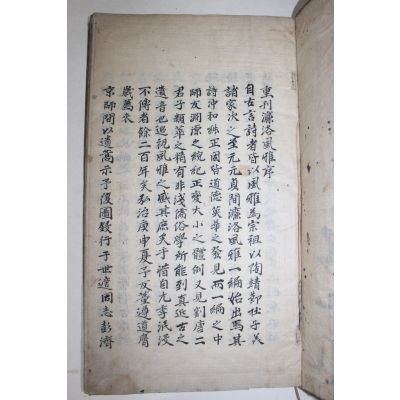 重刊濂洛風雅序
自古言詩者皆以風雅為宗祖以陶靖節杜子美
諸家次之至元元貞間濂洛風雅一編始出焉其
詩沖和純正固皆道德英華之發見而一編之中
師友淵源之統紀正變大小之體例又見劉唐二
君子類萃之精有非淺儒俗學所能到真近古之
遺音也迴視風雅之盛其庶矣乎惜自元季泯沒
不傳者餘二百年矣弘治庚申夏予友董遵道膺
歲薦来
京師間以遺藁示予復圖鋟行于世適同志彭濟